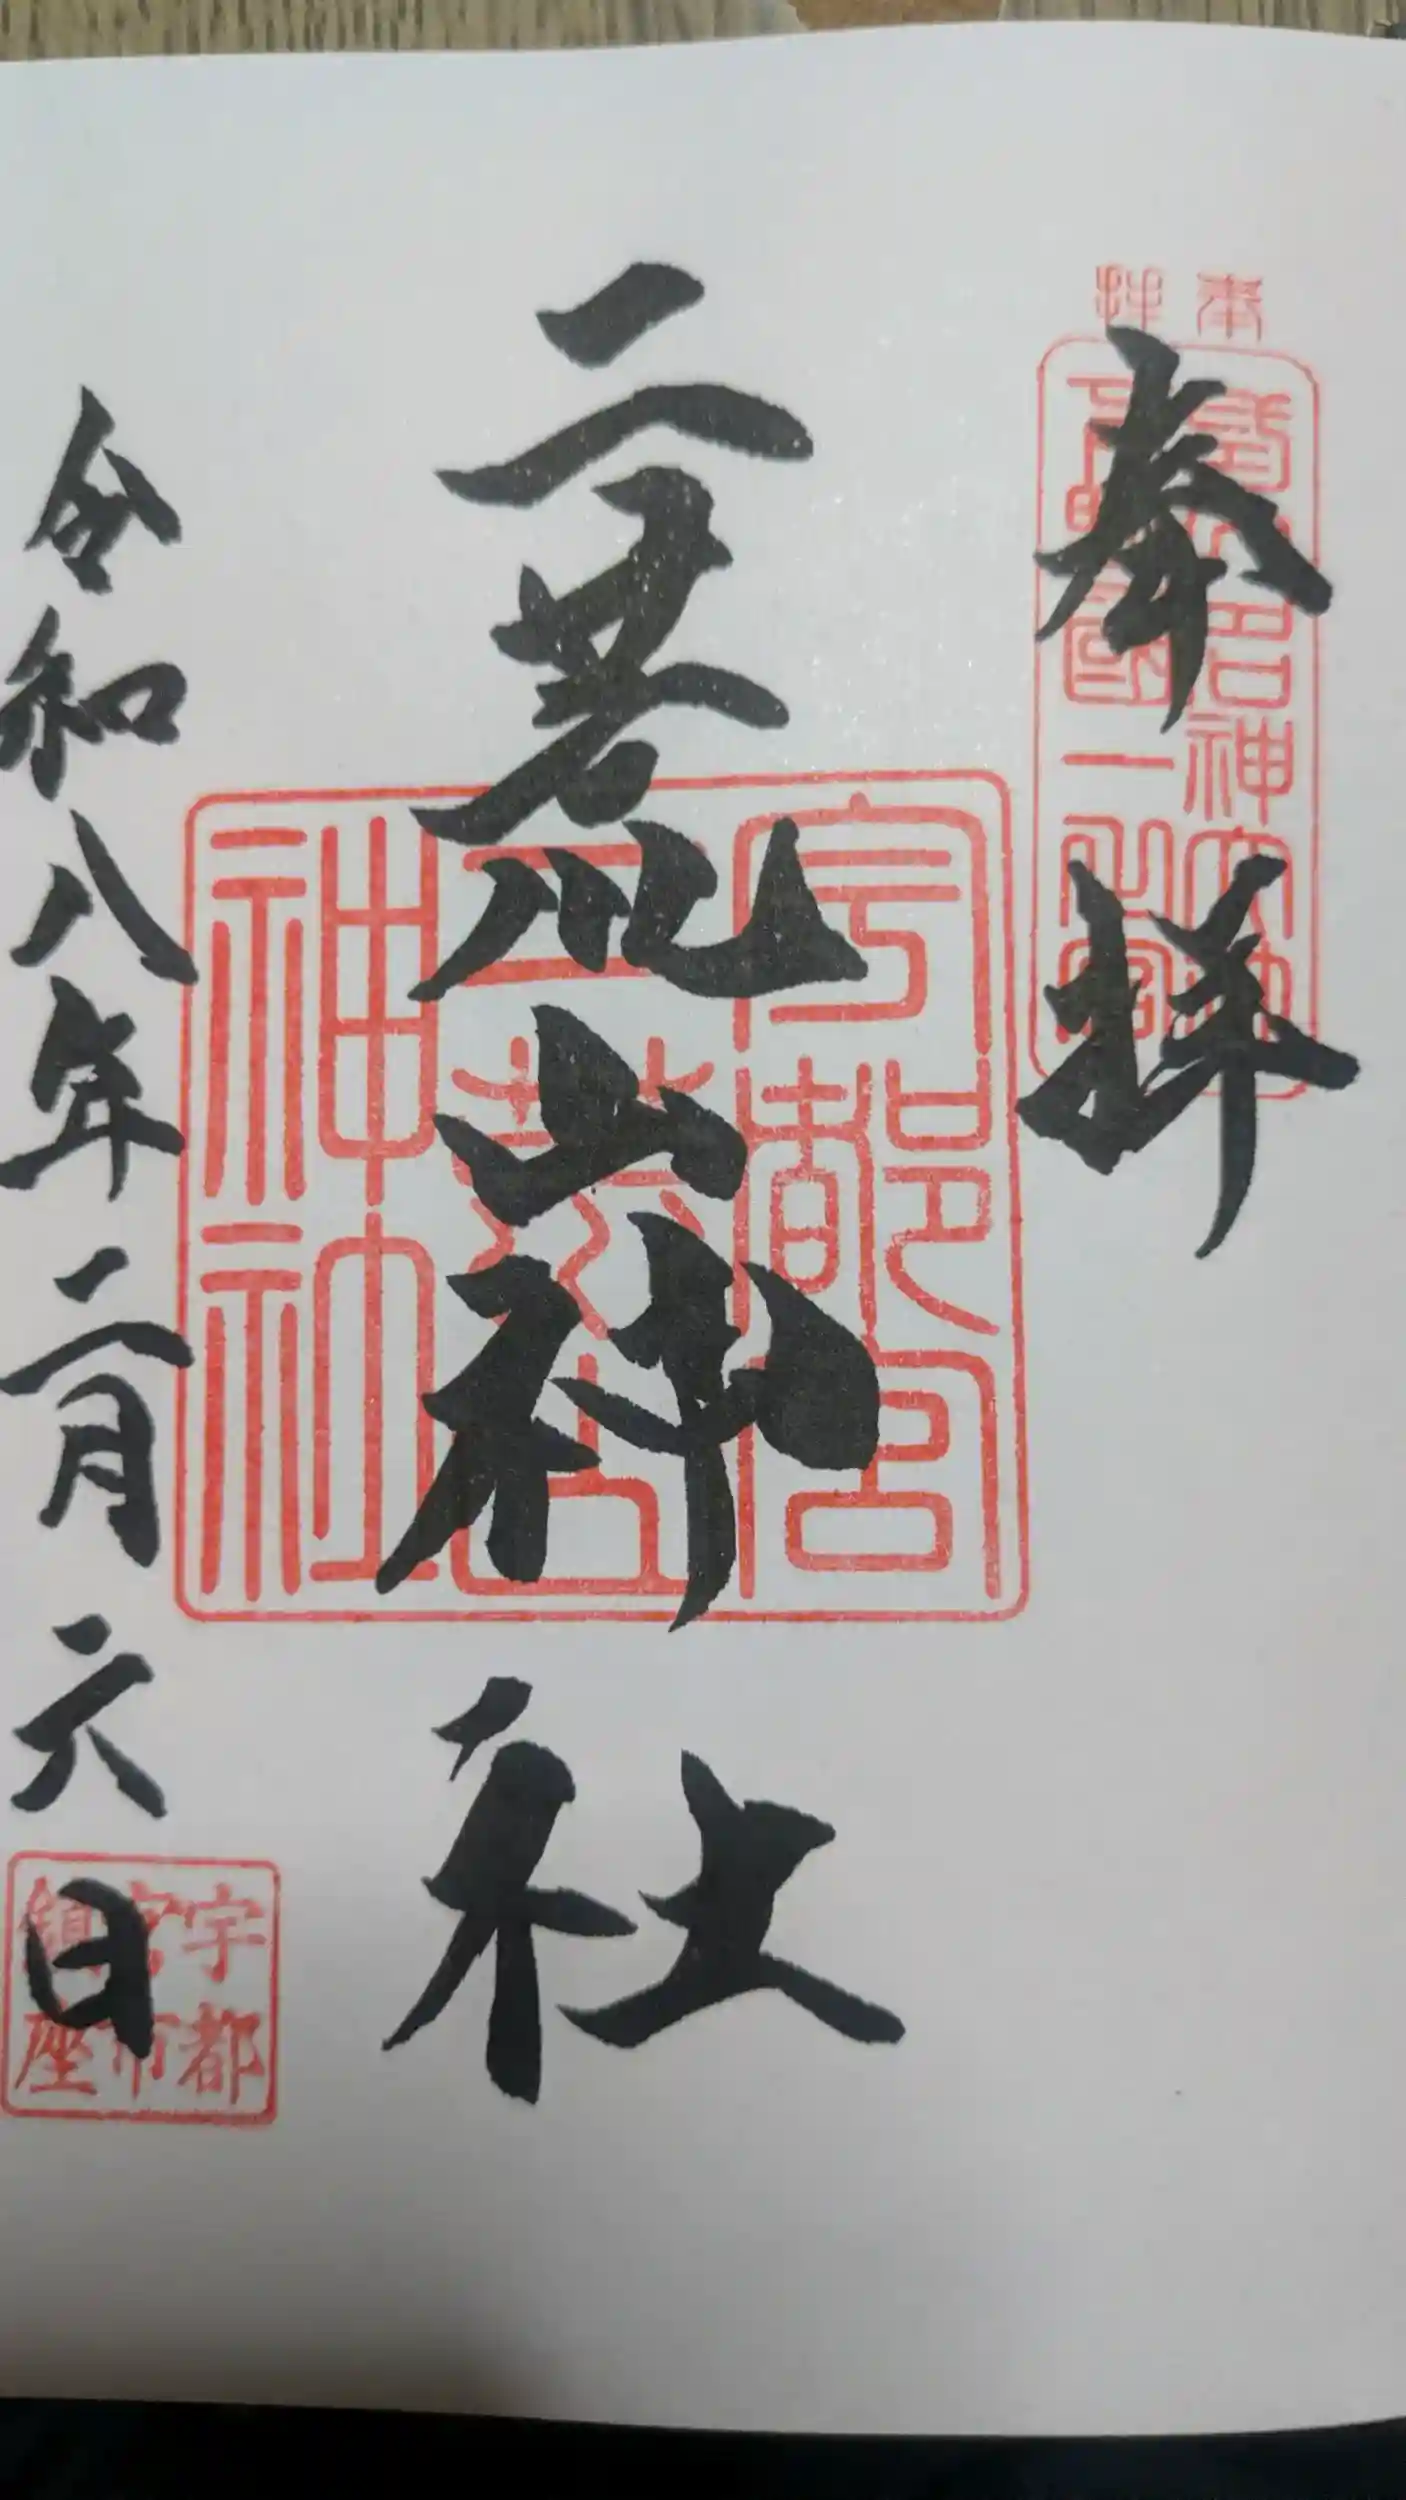 奉拝
二荒山神社
令和八年二月六日
宇都宮
二荒山
神社
宇都
宮市
鎮座